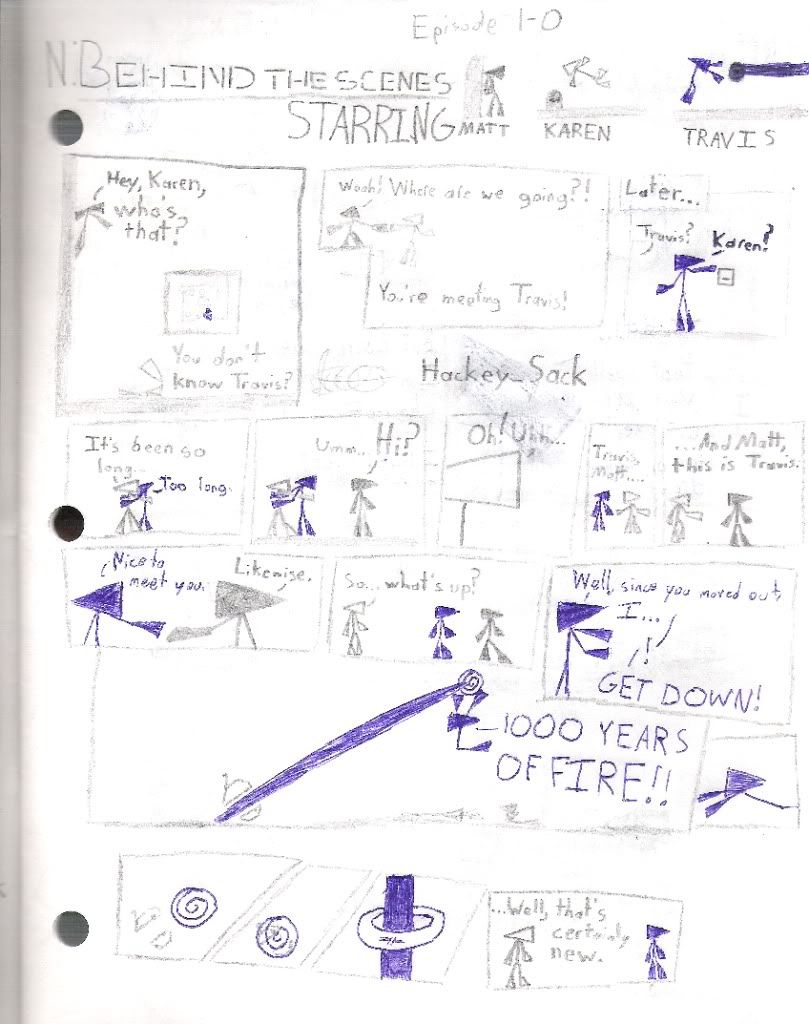 Episode 1-0
N:BEHIND THE SCENES
STARRING
MATT
KAREN
TRAVIS
Hey, Karen,
who's
that?
You don't
know Travis?
Woah! Where are we going?!
You're meeting Travis!
Later...
Travis?
Karen?
Hackey_Sack
It's been so
long...
Too long.
Umm... Hi?
Oh! Uhh...
Travis
Matt...
...And Matt,
this is Travis.
Nice to
meet you.
Likewise.
So... what's up?
Well, since you moved out,
I...
!
GET DOWN!
1000 YEARS
OF FIRE!!
...Well, that's
certainly
new.